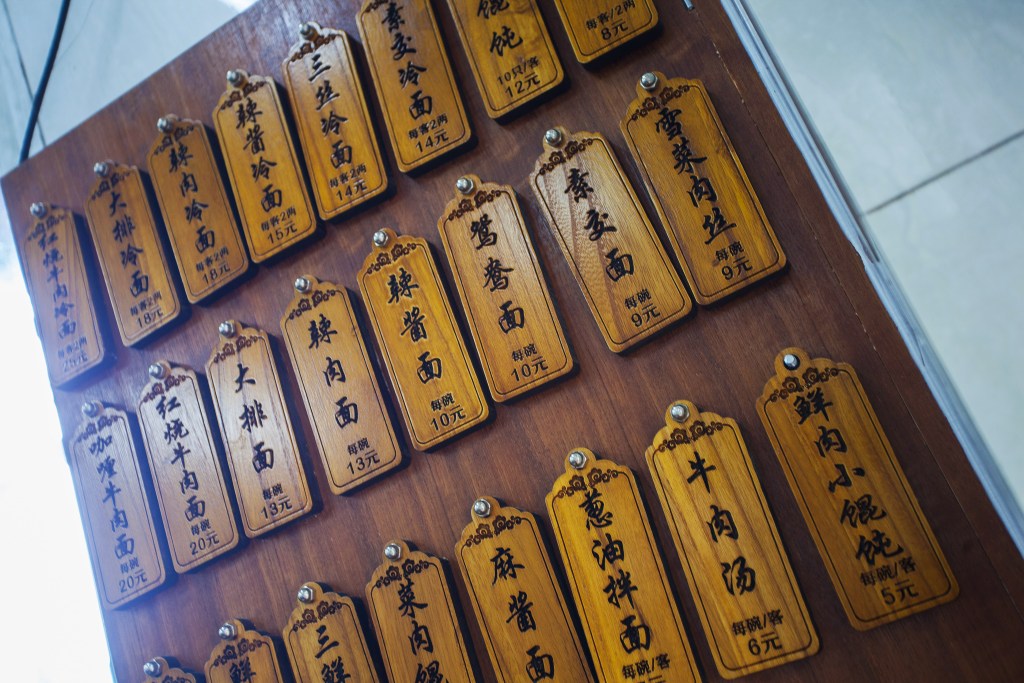 红烧牛肉冷面
每客2两
大排冷面
每客2两
18元
辣肉冷面
每客2两
18元
辣酱冷面
每客2两
15元
三丝冷面
每客2两
14元
素交冷面
每客2两
14元
馄饨
10只/客
12元
每客/2两
8元
咖喱牛肉面
每碗
20元
红烧牛肉面
每碗
20元
大排面
每碗
13元
辣肉面
每碗
13元
辣酱面
每碗
10元
鸳鸯面
每碗
10元
素交面
每碗
9元
雪菜肉丝
每碗
9元
鲜
三鲜
菜肉馄
麻酱面
葱油拌面
每碗/客
牛肉汤
每碗/客
6元
鲜肉小馄饨
每碗/客
5元